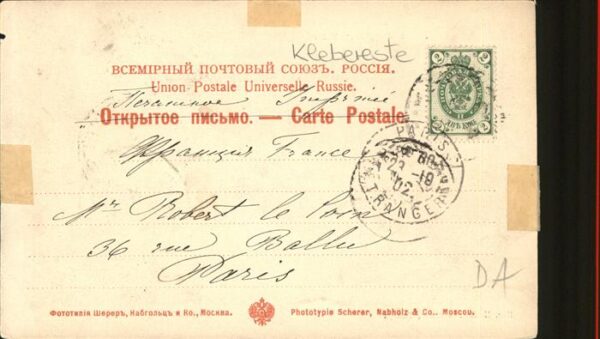 Klebereste
ВСЕМІРНЫЙ ПОЧТОВЫЙ СОЮЗЪ. РОССІЯ.
Union Postale Universelle Russie.
Печатное Imprimé
Открытое письмо. — Carte Postale.
Франція France
Mr Robert le
36 rue Ballu
Paris
2
2
2
2
PARIS
ETRANGER
02
DA
Фототипія Шереръ, Набгольцъ и Ко., Москва.
Phototypie Scherer, Nabholz & Co., Moscou.